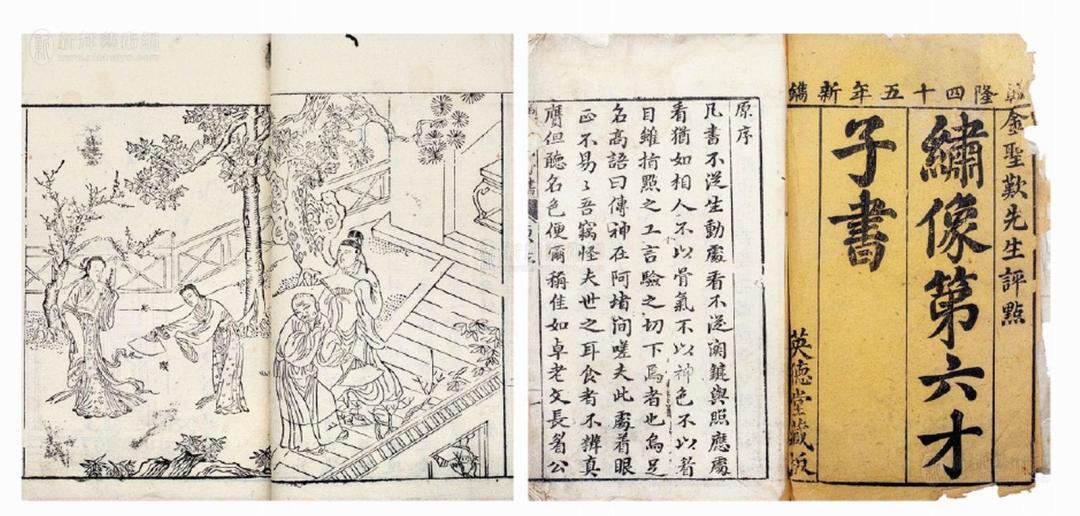 乾隆四十五年新鐫
金聖歎先生評點
繡像第六才
子書
英德堂藏板
原序
凡書不從生動處看不從關鍵與照應處
看猶如相人不以骨氣不以神色不以眉
目雖指點之工言驗之切下焉者也烏足
名高語曰傳神在阿堵间嗟夫此處着眼
正不易〻吾竊怪夫世之耳食者不辨真
贗但聽名色便爾稱佳如卓老文長眉公